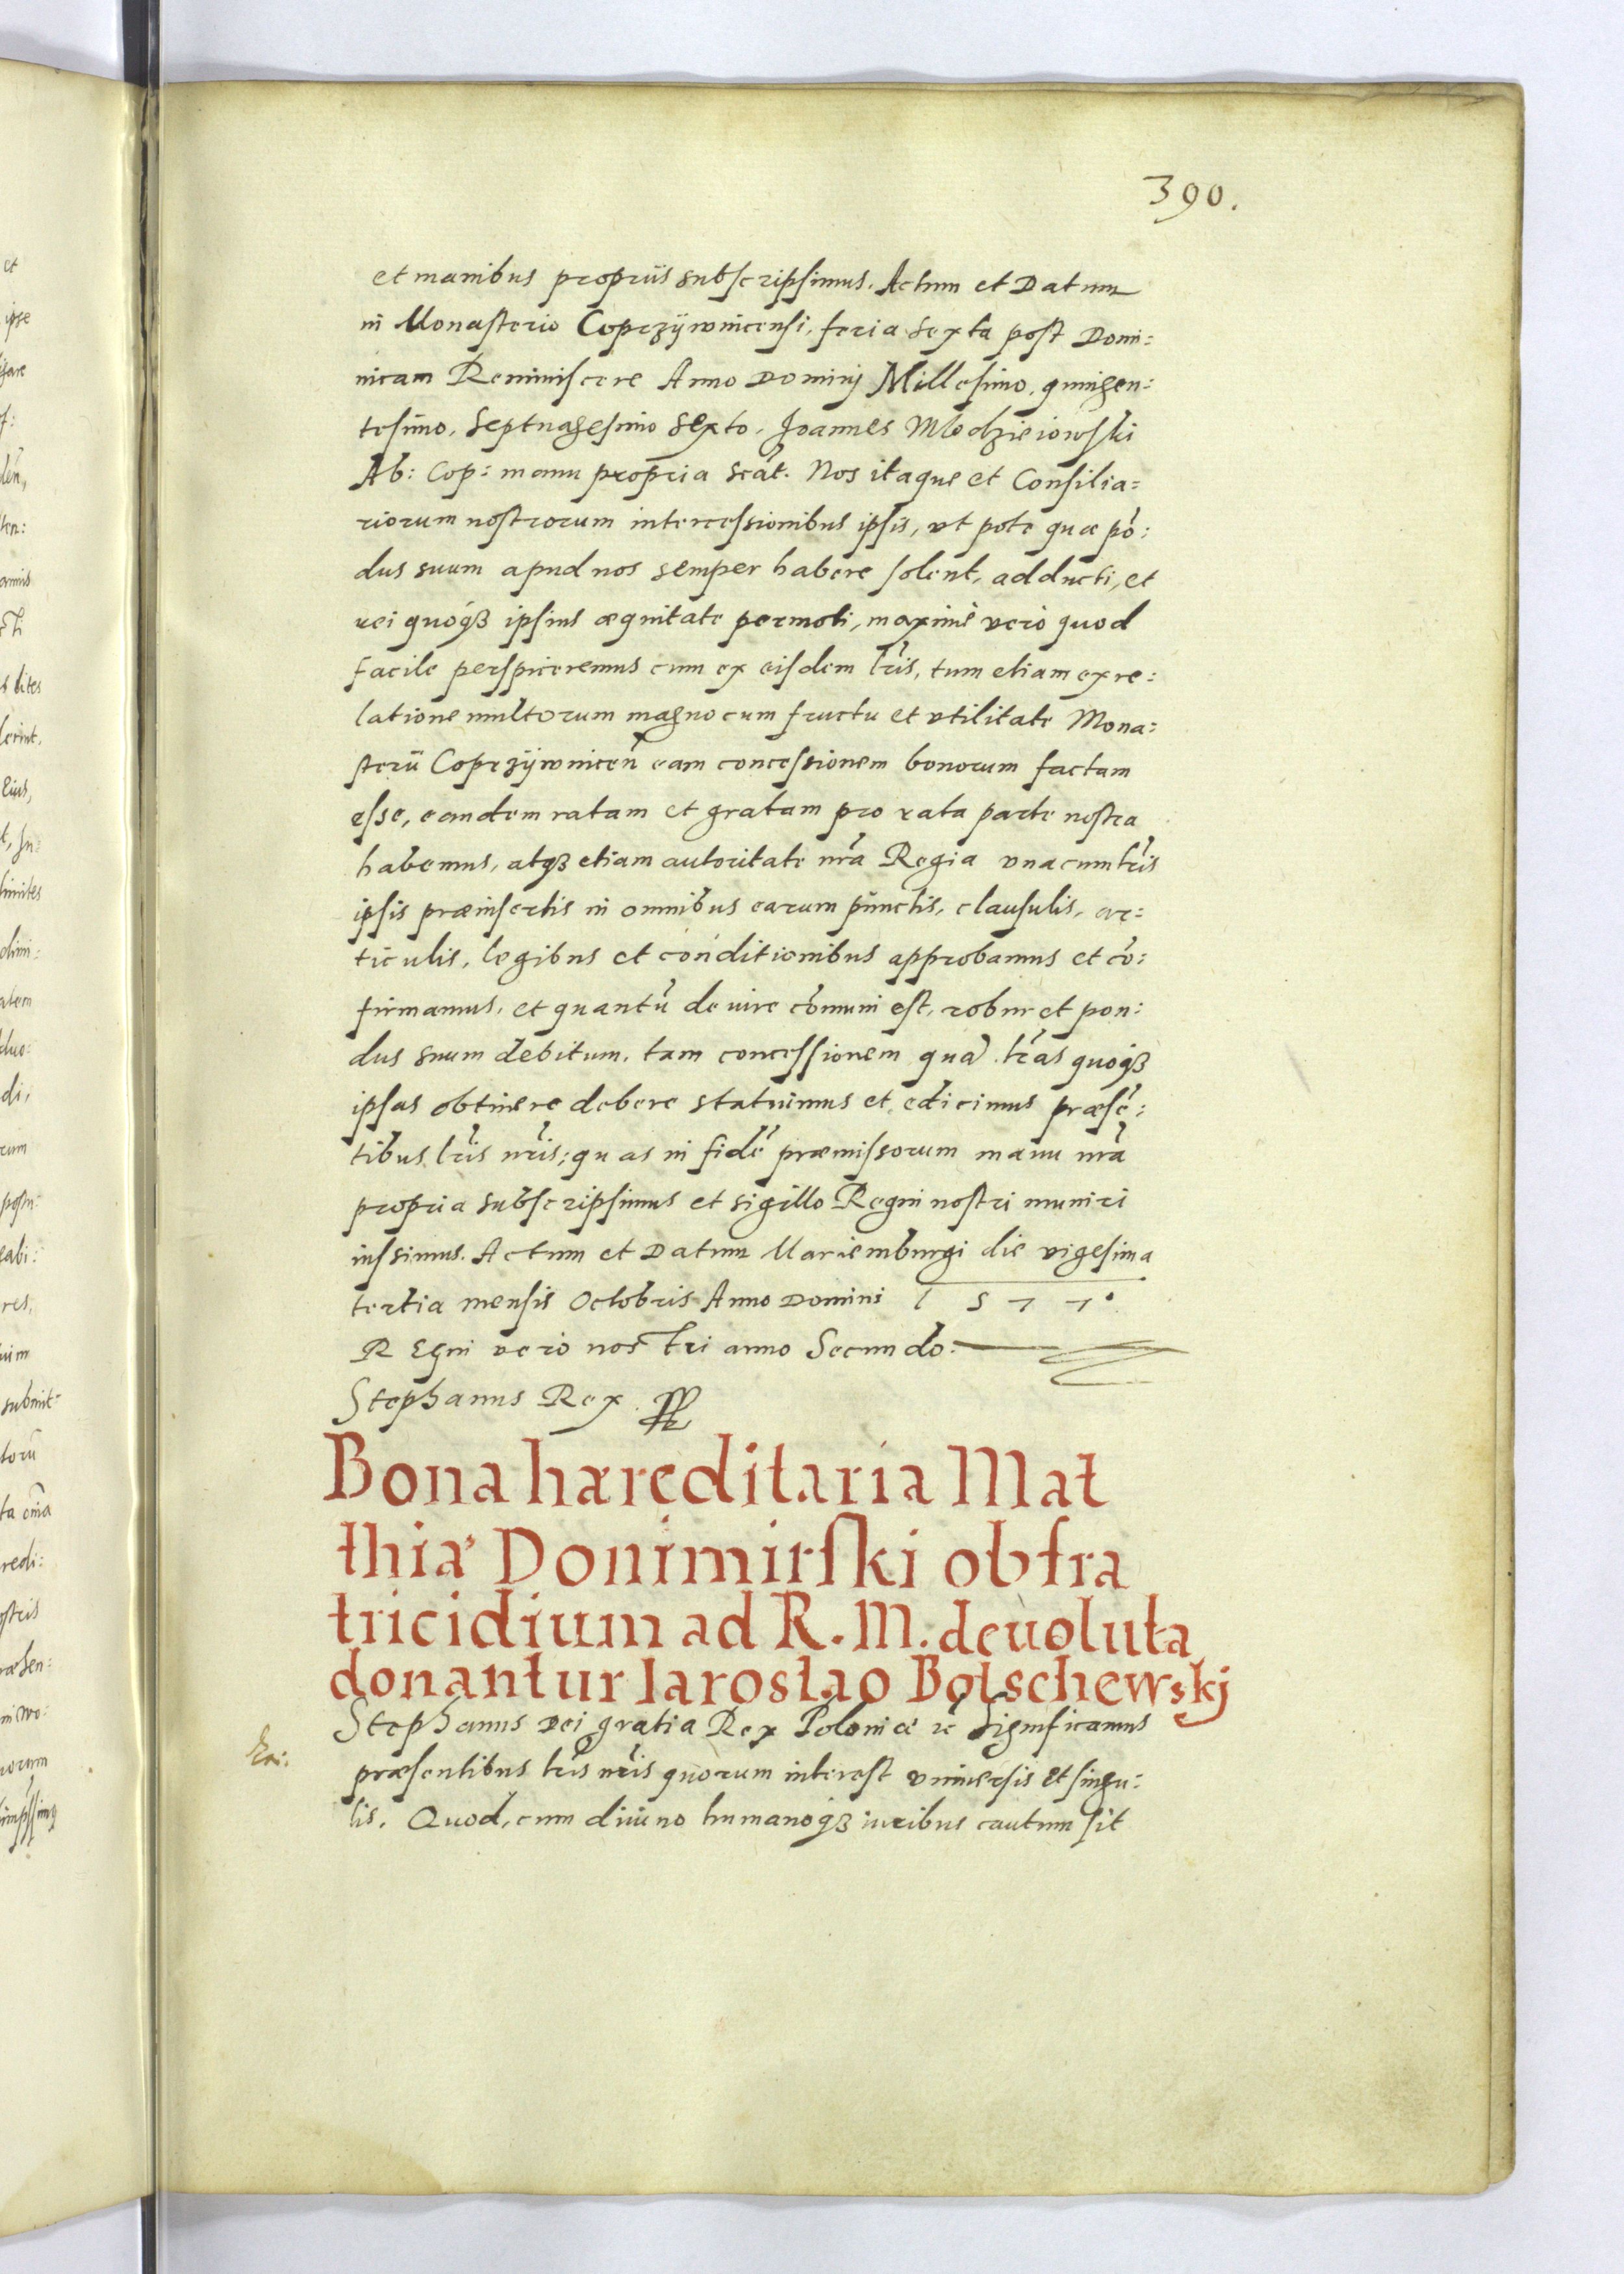 390.
et manibus propriis subscripsimus. Actum et Datum
in Monasterio Coprzywnicensi, feria sexta post Domi:
nicam Reminiscere Anno Dominj Millesimo, quingen:
tesimo, Septuagesimo sexto, Joannes Mlodzieiowski
Ab: Cop: manu propria scãt. Nos itaque et Consilia=
riorum nostrorum intercessionibus ipsis, vt pote quæ põ:
dus suum apud nos semper habere solent, adducti, et
rei quoqȝ ipsius æquitate permoti, maximè verò quod
facile perspiceremus cum ex eisdem lr̃is, tum etiam ex re:
latione multorum magno cum fructu et vtilitate Mona:
sterii Coprzywniceñ eam concessionem bonorum factam
esse, eandem ratam et gratam pro rata parte nostra
habemus, atqȝ etiam autoritate nr̃a Regia vna cum lr̃is
ipsis præinsertis in omnibus earum punctis, clausulis, ar=
ticulis, legibus et conditionibus approbamus et cõ:
firmamus, et quantũ de iure cõmuni est, robur et pon:
dus suum debitum, tam concessionem quã lr̃as quoqȝ
ipsas obtinere debere statuimus et edicimus præsẽ:
tibus lr̃is nr̃is; quas in fidẽ præmissorum manu nr̃a
propria subscripsimus et sigillo Regni nostri muniri
iussimus. Actum et Datum Mariemburgi die vigesima
tertia mensis Octobris Anno Domini 1 5 7 7.
REgni verò nostri anno Secundo.
Stephanus Rex.
Bona hæreditaria Mat
thiæ Donimirski ob fra
tricidium ad R. M. deuoluta
donantur Iaroslao Bolschewskj
Stephanus Dei gratia Rex Poloniæ ꝛc̃ Significamus
præsentibus lr̃is nr̃is quorum interest vniuersis et singu:
lis. Quod, cum diuino humanoqȝ iuribus cautum sit